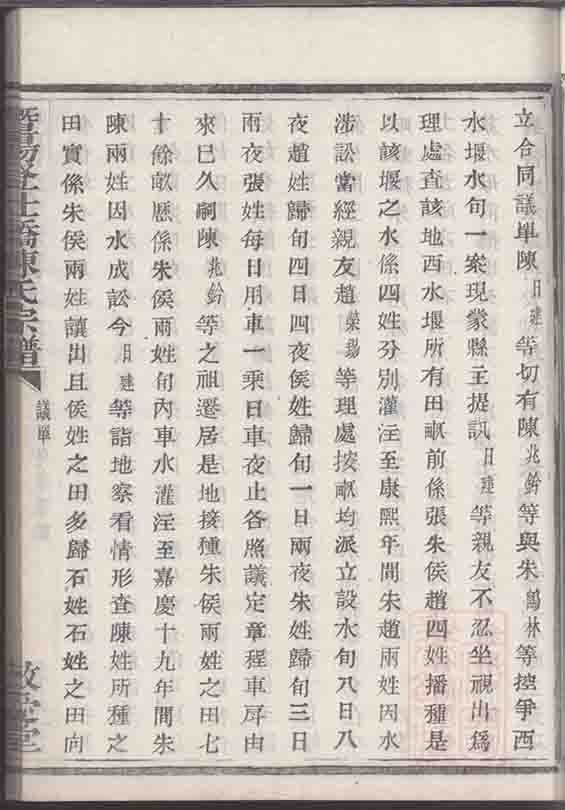 立合同議單陳日建等切有陳兆鈴等與朱鳳林等控爭西
水堰水旬一案現蒙縣主提訊日建等親友不忍坐視出爲
理處查該地西水堰所有田畝前係張朱侯趙四姓播種是
以該堰之水係四姓分別灌注至康熙年間朱趙兩姓因水
涉訟當經親友趙榮揚等理處按畝均派立設水旬八日八
夜趙姓歸旬四日四夜侯姓歸旬一日兩夜朱姓歸旬三日
兩夜張姓每日用車一乘日車夜止各照議定章程車戽由
來已久嗣陳兆鈴等之祖遷居是地接種朱侯兩姓之田七
十餘畝歷係朱侯兩姓旬內車水灌注至嘉慶十九年間朱
陳兩姓因水成訟今日建等詣地察看情形查陳姓所種之
田實係朱侯兩姓讓出且侯姓之田多歸石姓石姓之田向
陳氏宗譜
議單
敘堂